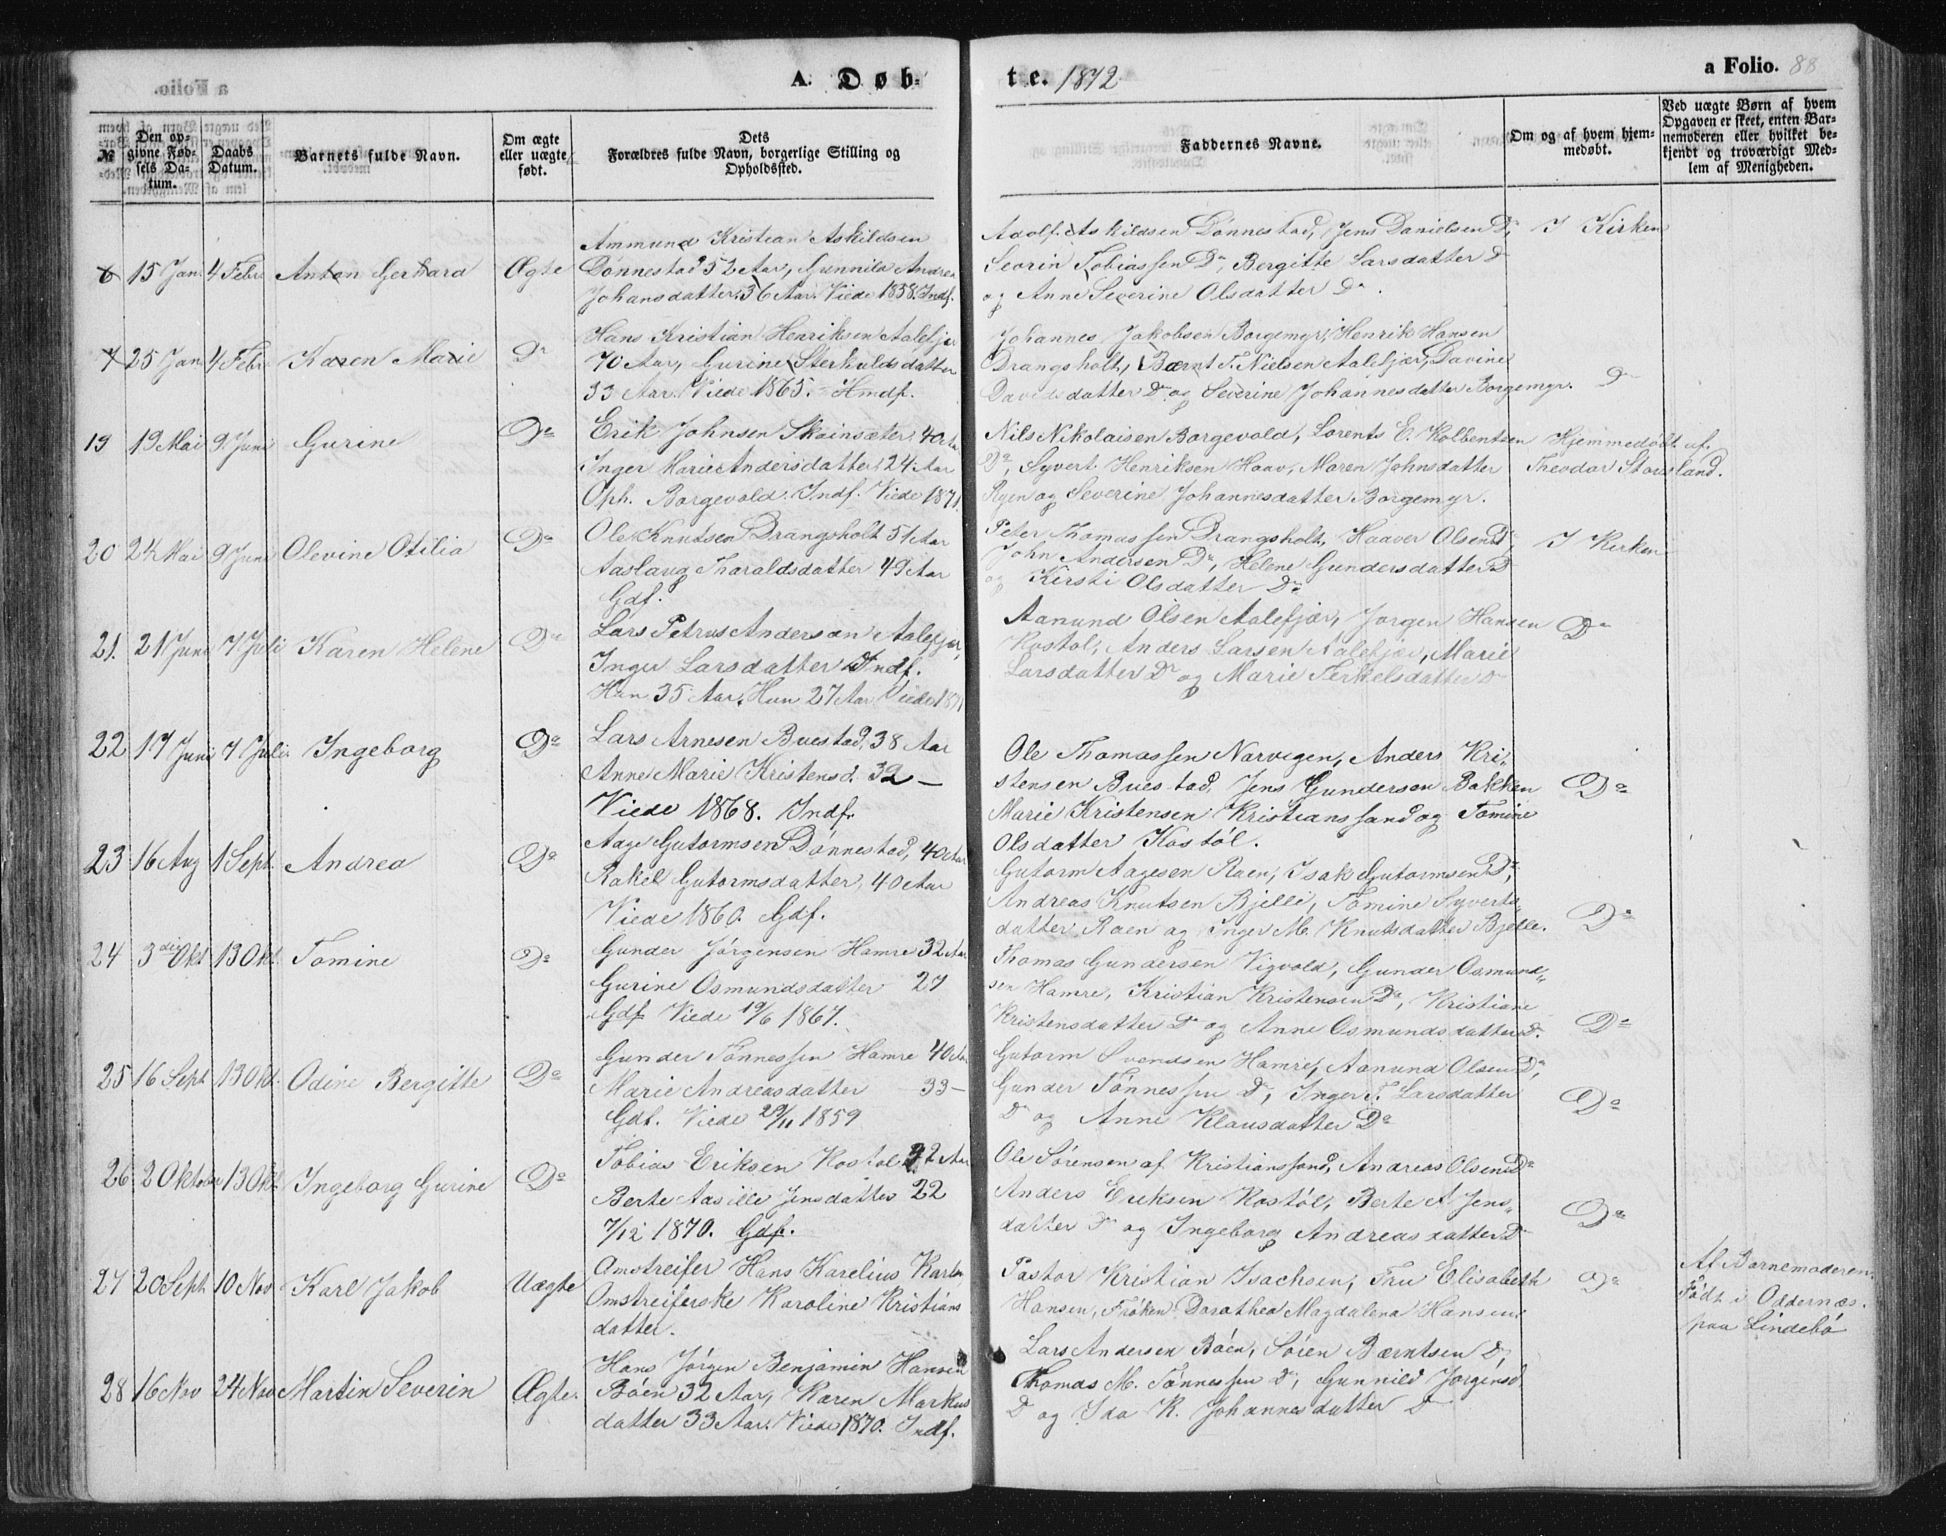 A. Døb-
te. 1872.
a Folio. 88
№
Den opgivne Fødsels Datum.
Daabs Datum.
Barnets fulde Navn.
Om ægte eller uægte født.
Dets Forældres fulde Navn, borgerlige Stilling og Opholdssted.
Faddernes Navne.
Om og af hvem hjemmedøbt.
Ved uægte Børn af hvem Opgaven er skeet, enten Barnemoderen eller hvilket bekjendt og troværdigt Medlem af Menigheden.
6 15 Jan. 4 Febr Anton Gerhard Ægte
Ammund Kristian Askildsen
Dønnestad 52 Aar, Gunnild Andrea
Johansdatter 36 Aar. Viede 1858. Indf.
Adolf Askildsen Dønnestad, Jens Danielsen Do,
Seorin Tobiassen Do, Bergitte Larsdatter Do
og Anne Severine Olsdatter Do.
I Kirken
7 25 Jan 4 Febr Karen Marie Do
Hans Kristian Henriksen Aalefjær
70 Aar, Gurine Sterkulds datter
33 Aar. Viede 1865. - Hmdf.
Johannes Jakobsen Borgemyr, Henrik Hansen
Drangsholt, Bærnt T. Nielsen Aalefjær, Davine
Davids datter Do og Severine Johannesdatter Borgemyr.
Do
19 19 Mai 9 Juni Gurine Do
Erik Johnsen Skainsæter 40 Aar
Inger Marie Andersdatter 24 Aar
Oph. Borgevold. Indf. Viede 1871.
Nils Nikolaisen Borgevold, Lorents E. Kolbentsen
Do, Syvert Henriksen Haav, Maren Johnsdatter
Ryen og Severine Johannesdatter Borgemyr.
Hjemmedøbt af
Theodor Stovesland.
20 24 Mai 9 Juni Olevine Otilia Do
Ole Knutsen Drangsholt 51 Aar
Aaslaug Tharaldsdatter 49 Aar
Gdf.
Peter Thomassen Drangsholt, Haaver Olsen Do,
John Andersen Do, Helene Gundersdatter Do
og Kirsti Olsdatter Do
I Kirken
21. 21 Juni 7 Juli Karen Helene Do
Lars Petrus Andersen Aalefjær,
Inger Larsdatter Indf.
Han 35 Aar, Hun 27 Aar Viede 1871
Aanund Olsen Aalefjær, Jørgen Hansen
Kostøl, Anders Larsen Aalefjær, Marie
Larsdatter Do og Marie Terkelsdatter Do
Do
22 17 Juni 7 Juli. Ingeborg Do
Lars Arnesen Buestad, 38 Aar
Anne Marie Kristensd. 32 —
Viede 1868. Indf.
Ole Thomassen Narvigen, Anders Kri-
stensen Buestad, Jens Gundersen Bakken
Marie Kristensen Kristianssand og Tomine
Olsdatter Kostøl.
Do
23 16 Aug 1 Sept. Andrea Do
Aage Gutormsen Dønnestad, 40 Aar
Rakel Gutormsdatter, 40 Aar
Viede 1860. Gdf.
Gutorm Aagesen Raen, Isak Gutormsen Do,
Andreas Knutsen Bjelle, Tomine Syverts-
datter Raen og Inger M. Knutsdatter Bjelle.
Do
24 3die Okt 13 Okt. Tomine Do
Gunder Jørgensen Hamre 32 Aar
Gurine Osmundsdatter 27
Gdf Viede 19/6 1867.
Thomas Gundersen Vigvold, Gunder Osmund-
sen Hamre, Kristian Kristensen Do, Kristiane
Kristensdatter Do og Anne Osmundsdatter Do.
Do
25 16 Sept 13 Okt. Odine Bergitte Do
Gunder Tønnessen Hamre 40 Aar
Marie Andreasdatter 33 —
Gdf. Viede 29/11 1859
Gutorm Svendsen Hamre, Aanund Olsen Do,
Gunder Tønnessen Do, Inger T. Larsdatter
Do og Anne Klausdatter Do
Do
26 2 Oktober 13 Okt Ingeborg Gurine Do
Tobias Eriksen Kostøl 32 Aar
Berte Aasille Jensdatter 22
7/12 1870. Gdf.
Ole Sørensen af Kristianssand, Andreas Olsen Do
Anders Eriksen Kostøl, Berte A. Jens-
datter Do og Ingeborg Andreasdatter Do
Do
27 20 Sept 10 Nov Karl Jakob Uægte
Omstreifer Hans Karelius Karls
Omstreiferske Karoline Kristians
datter.
Pastor Kristian Isachsen, Fru Elisabeth
Hansen, Frøken Dorothea Magdalena Hansen.
Do
Af Barnemoderen.
Født i Oddernæs.
paa Lindebø
28 16 Nov 24 Nov Martin Severin Ægte.
Hans Jørgen Benjamin Hansen
Bøen 32 Aar, Karen Markus
datter 33 Aar. Viede 1870. Indf.
Lars Andersen Bøen, Søren Bærntsen Do,
Thomas M. Tønnessen Do, Gunnild Jørgensd.
Do og Ida K. Johannesdatter Do